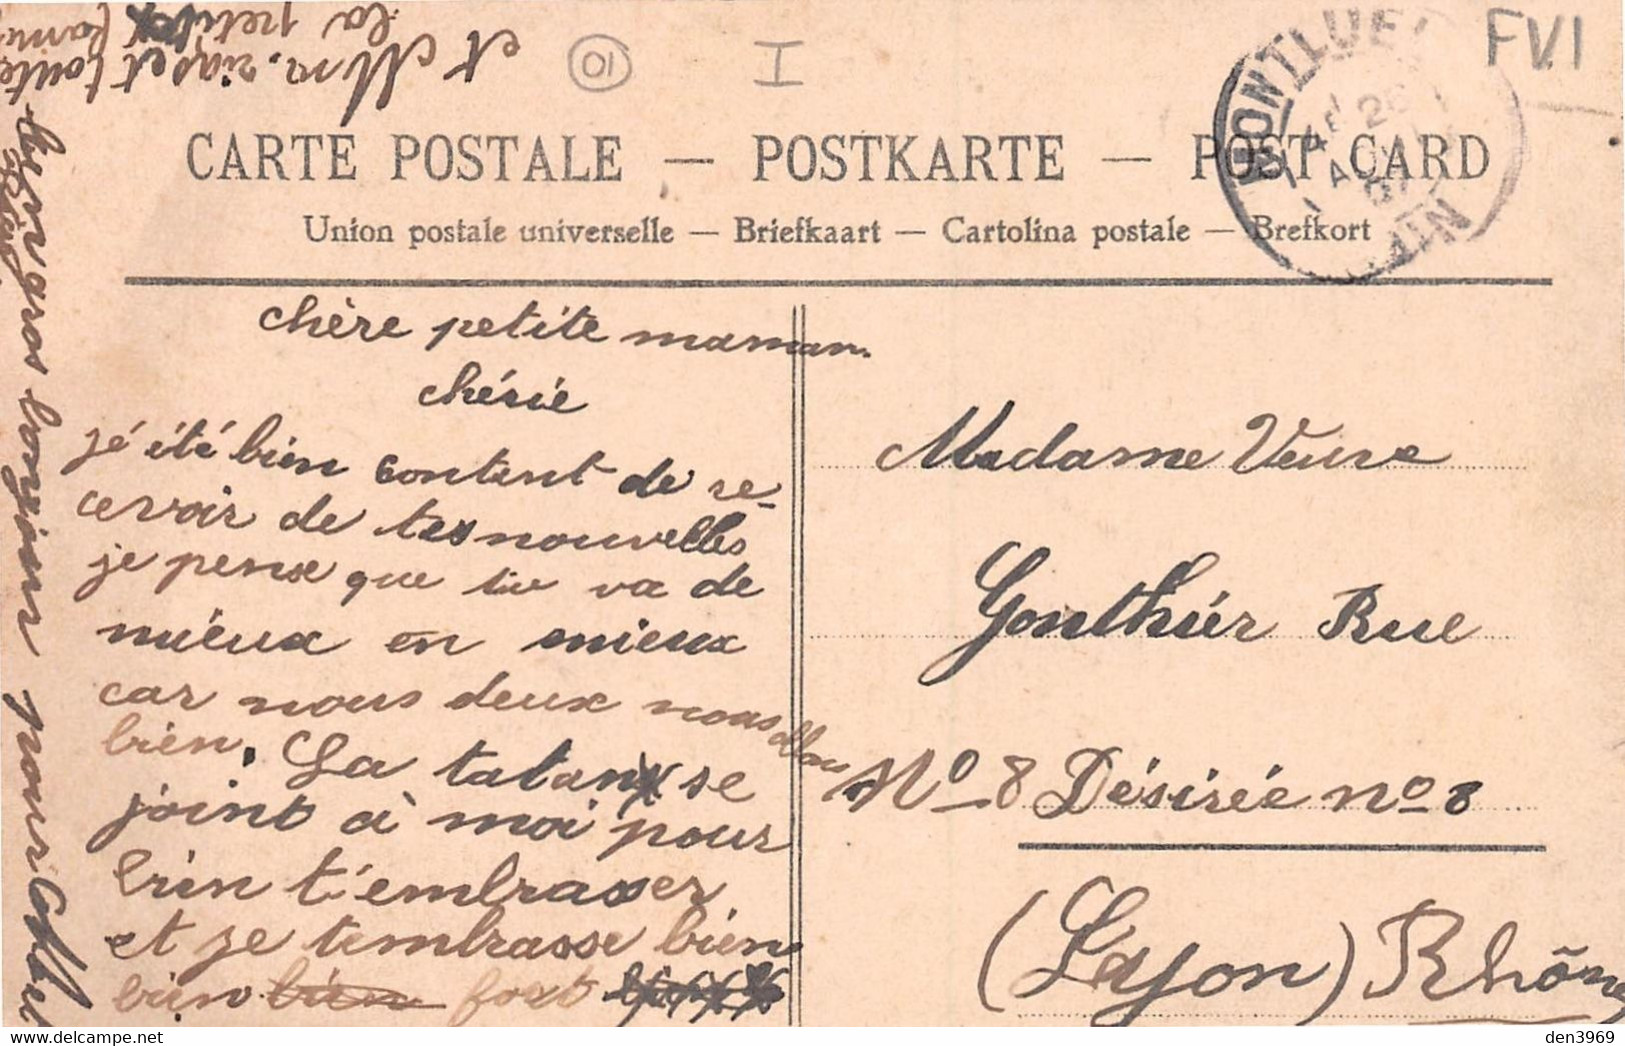 FV.1
I
10
CARTE POSTALE — POSTKARTE — POST CARD
Union postale universelle — Briefkaart — Cartolina postale — Brefkort
MONTLUEL
AIN
chère petite maman
chérie
jé été bien content de re-
cevoir de tes nouvelles
je pense que tu va de
mieux en mieux
car nous deux nous allons
bien. La tatan se
joint à moi pour
bien t'embrasser
et je tembrasse bien
bien bien fort
un gros bonjour pour
et Mm. et toute
la petite
Madame Veuve
Gonthiér Rue
No 8 Désirée no 8
(Lyon) Rhône
den3969